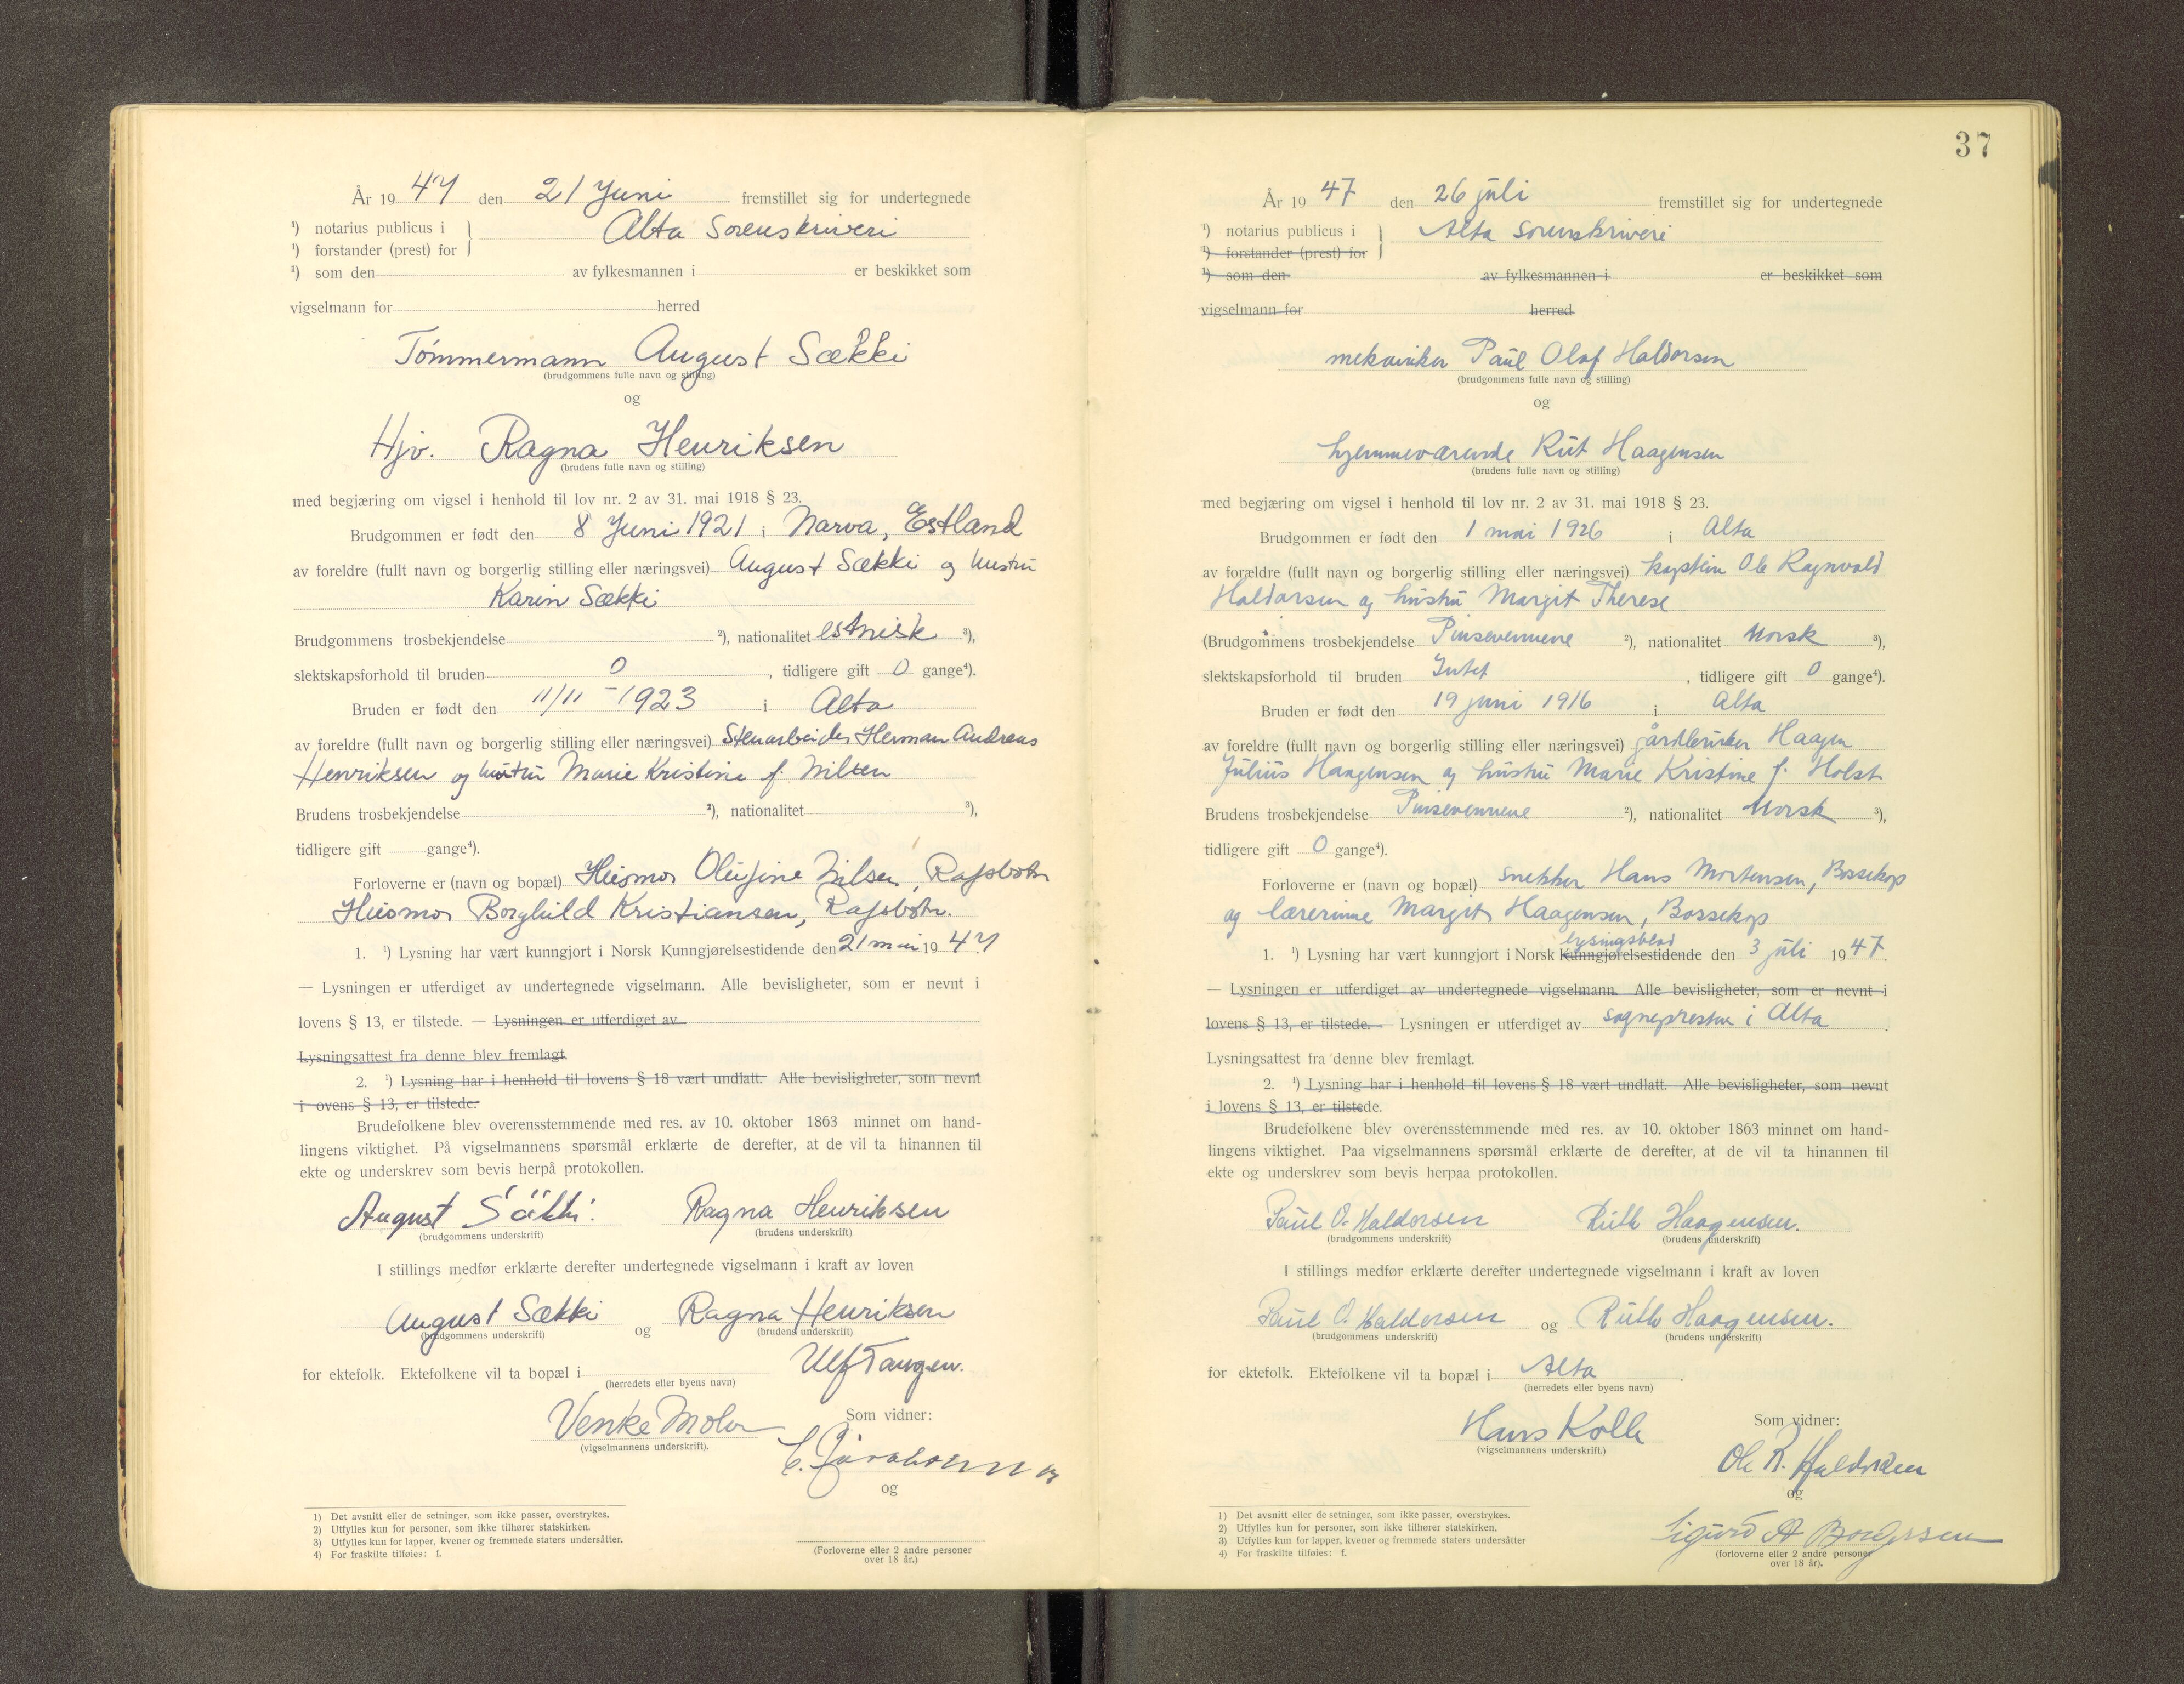 År 19 47 den 21 Juni fremstillet sig for undertegnede
¹) notarius publicus i } Alta Sorenskriveri
¹) forstander (prest) for
¹) som den av fylkesmannen i er beskikket som
vigselmann for herred
Tömmermann August Sækki
(brudgommens fulle navn og stilling)
og
Hjv. Ragna Henriksen
(brudens fulle navn og stilling)
med begjæring om vigsel i henhold til lov nr. 2 av 31. mai 1918 § 23.
Brudgommen er født den 8 Juni 1921 i Narva, Estland
av foreldre (fullt navn og borgerlig stilling eller næringsvei) August Sækki og hustru
Karin Sækki
Brudgommens trosbekjendelse ²), nationalitet estnisk ³),
slektskapsforhold til bruden 0, tidligere gift 0 gange⁴).
Bruden er født den 11/11 - 1923 i Alta
av foreldre (fullt navn og borgerlig stilling eller næringsvei) Stenarbeider Herman Andreas
Henriksen og hustru Marie Kristine f. Nilsen
Brudens trosbekjendelse ²), nationalitet ³),
tidligere gift gange⁴).
Forloverne er (navn og bopæl) Husmor Olufine Nilsen, Rafsbotn
Husmor Borghild Kristiansen, Rafsbotn.
1. ¹) Lysning har vært kunngjort i Norsk Kunngjørelsestidende den 21 mai 19 47.
— Lysningen er utferdiget av undertegnede vigselmann. Alle bevisligheter, som er nevnt i
lovens § 13, er tilstede. — Lysningen er utferdiget av
Lysningsattest fra denne blev fremlagt.
2. ¹) Lysning har i henhold til lovens § 18 vært undlatt. Alle bevisligheter, som nevnt
i ovens § 13, er tilstede.
Brudefolkene blev overensstemmende med res. av 10. oktober 1863 minnet om hand-
lingens viktighet. På vigselmannens spørsmål erklærte de derefter, at de vil ta hinannen til
ekte og underskrev som bevis herpå protokollen.
August Säkki. Ragna Henriksen
(brudgommens underskrift) (brudens underskrift)
I stillings medfør erklærte derefter undertegnede vigselmann i kraft av loven
August Sækki og Ragna Henriksen
(brudgommens underskrift) (brudens underskrift)
for ektefolk. Ektefolkene vil ta bopæl i Ulf Tangen.
(herredets eller byens navn)
Venke Som vidner:
(vigselmannens underskrift).
og
1) Det avsnitt eller de setninger, som ikke passer, overstrykes.
2) Utfylles kun for personer, som ikke tilhører statskirken.
3) Utfylles kun for lapper, kvener og fremmede staters undersåtter.
4) For fraskilte tilføies: f.
(Forloverne eller 2 andre personer
over 18 år.)
37
År 19 47 den 26 juli fremstillet sig for undertegnede
¹) notarius publicus i } Alta sorenskriveri
¹) forstander (prest) for
¹) som den av fylkesmannen i er beskikket som
vigselmann for herred
mekaniker Paul Olaf Haldorsen
(brudgommens fulle navn og stilling)
og
hjemmeværende Rut Haagensen
(brudens fulle navn og stilling)
med begjæring om vigsel i henhold til lov nr. 2 av 31. mai 1918 § 23.
Brudgommen er født den 1 mai 1926 i Alta
av forældre (fullt navn og borgerlig stilling eller næringsvei) kaptein Ole Ragnvald
Haldorsen og hustru Margit Therese
(Brudgommens trosbekjendelse Pinsevennene ²), nationalitet Norsk ³),
slektskapsforhold til bruden Intet, tidligere gift 0 gange⁴).
Bruden er født den 19 juni 1916 i Alta
av foreldre (fullt navn og borgerlig stilling eller næringsvei) gårdbruker Haagen
Julius Haagensen og hustru Marie Kristine f. Holst
Brudens trosbekjendelse Pinsevennene ²), nationalitet Norsk ³),
tidligere gift 0 gange⁴).
Forloverne er (navn og bopæl) snekker Hans Mortensen, Bossekop
og lærerinne Margit Haagensen, Bossekop
lysingsblad
1. ¹) Lysning har vært kunngjort i Norsk Kunngjørelsestidende den 3 juli 19 47.
— Lysningen er utferdiget av undertegnede vigselmann. Alle bevisligheter, som er nevnt i
lovens § 13, er tilstede. — Lysningen er utferdiget av sognepresten i Alta.
Lysningsattest fra denne blev fremlagt.
2. ¹) Lysning har i henhold til lovens § 18 vært undlatt. Alle bevisligheter, som nevnt
i lovens § 13, er tilstede.
Brudefolkene blev overensstemmende med res. av 10. oktober 1863 minnet om hand-
lingens viktighet. Paa vigselmannens spørsmål erklærte de derefter, at de vil ta hinannen til
ekte og underskrev som bevis herpaa protokollen.
Paul O. Haldorsen Ruth Haagensen.
(brudgommens underskrift) (brudens underskrift)
I stillings medfør erklærte derefter undertegnede vigselmann i kraft av loven
Paul O. Haldorsen og Ruth Haagensen.
(brudgommens underskrift) (brudens underskrift)
for ektefolk. Ektefolkene vil ta bopæl i Alta.
(herredets eller byens navn)
Hans Kolle Som vidner:
(vigselmannens underskrift.)
Ole R. Haldorsen
og
Sigurd A Borgersen
(forloverne eller 2 andre personer
over 18 år).
1) Det avsnitt eller de setninger, som ikke passer, overstrykes.
2) Utfylles kun for personer, som ikke tilhører statskirken.
3) Utfylles kun for lapper, kvener og fremmede staters undersåtter
4) For fraskilte tilføies: f.